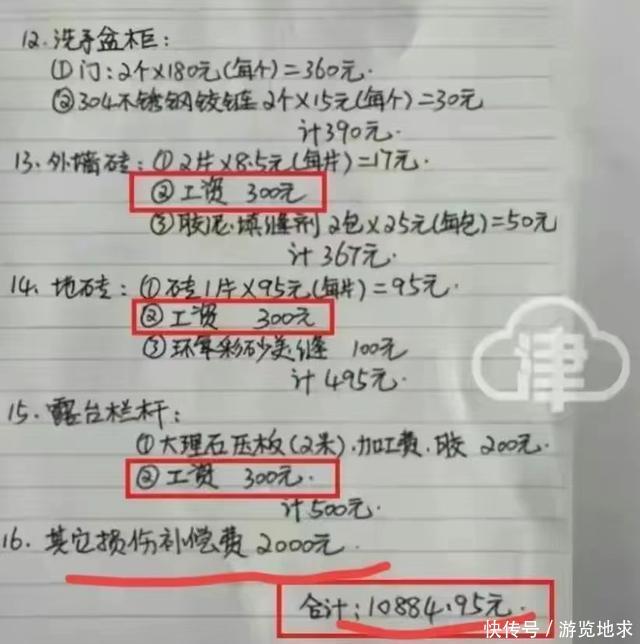 12. 洗手盆柜:
①门:2个×180元(每个)=360元.
②304不锈钢铰链 2个×15元(每个)=30元
计390元.
13. 外墙砖:①2片×8.5元(每片)=17元.
②工资 300元
③胶泥.填缝剂 2包×25元(每包)=50元
计367元.
14. 地砖:①砖1片×95元(每片)=95元.
②工资 300元
③环氧彩砂美缝 100元
计495元.
15. 露台栏杆:
①大理石压板(2米).加工费.胶 200元.
②工资 300元.
计500元.
16. 其它损伤补偿费 2000元.
合计:10884.95元.
津
快传号/游览地求